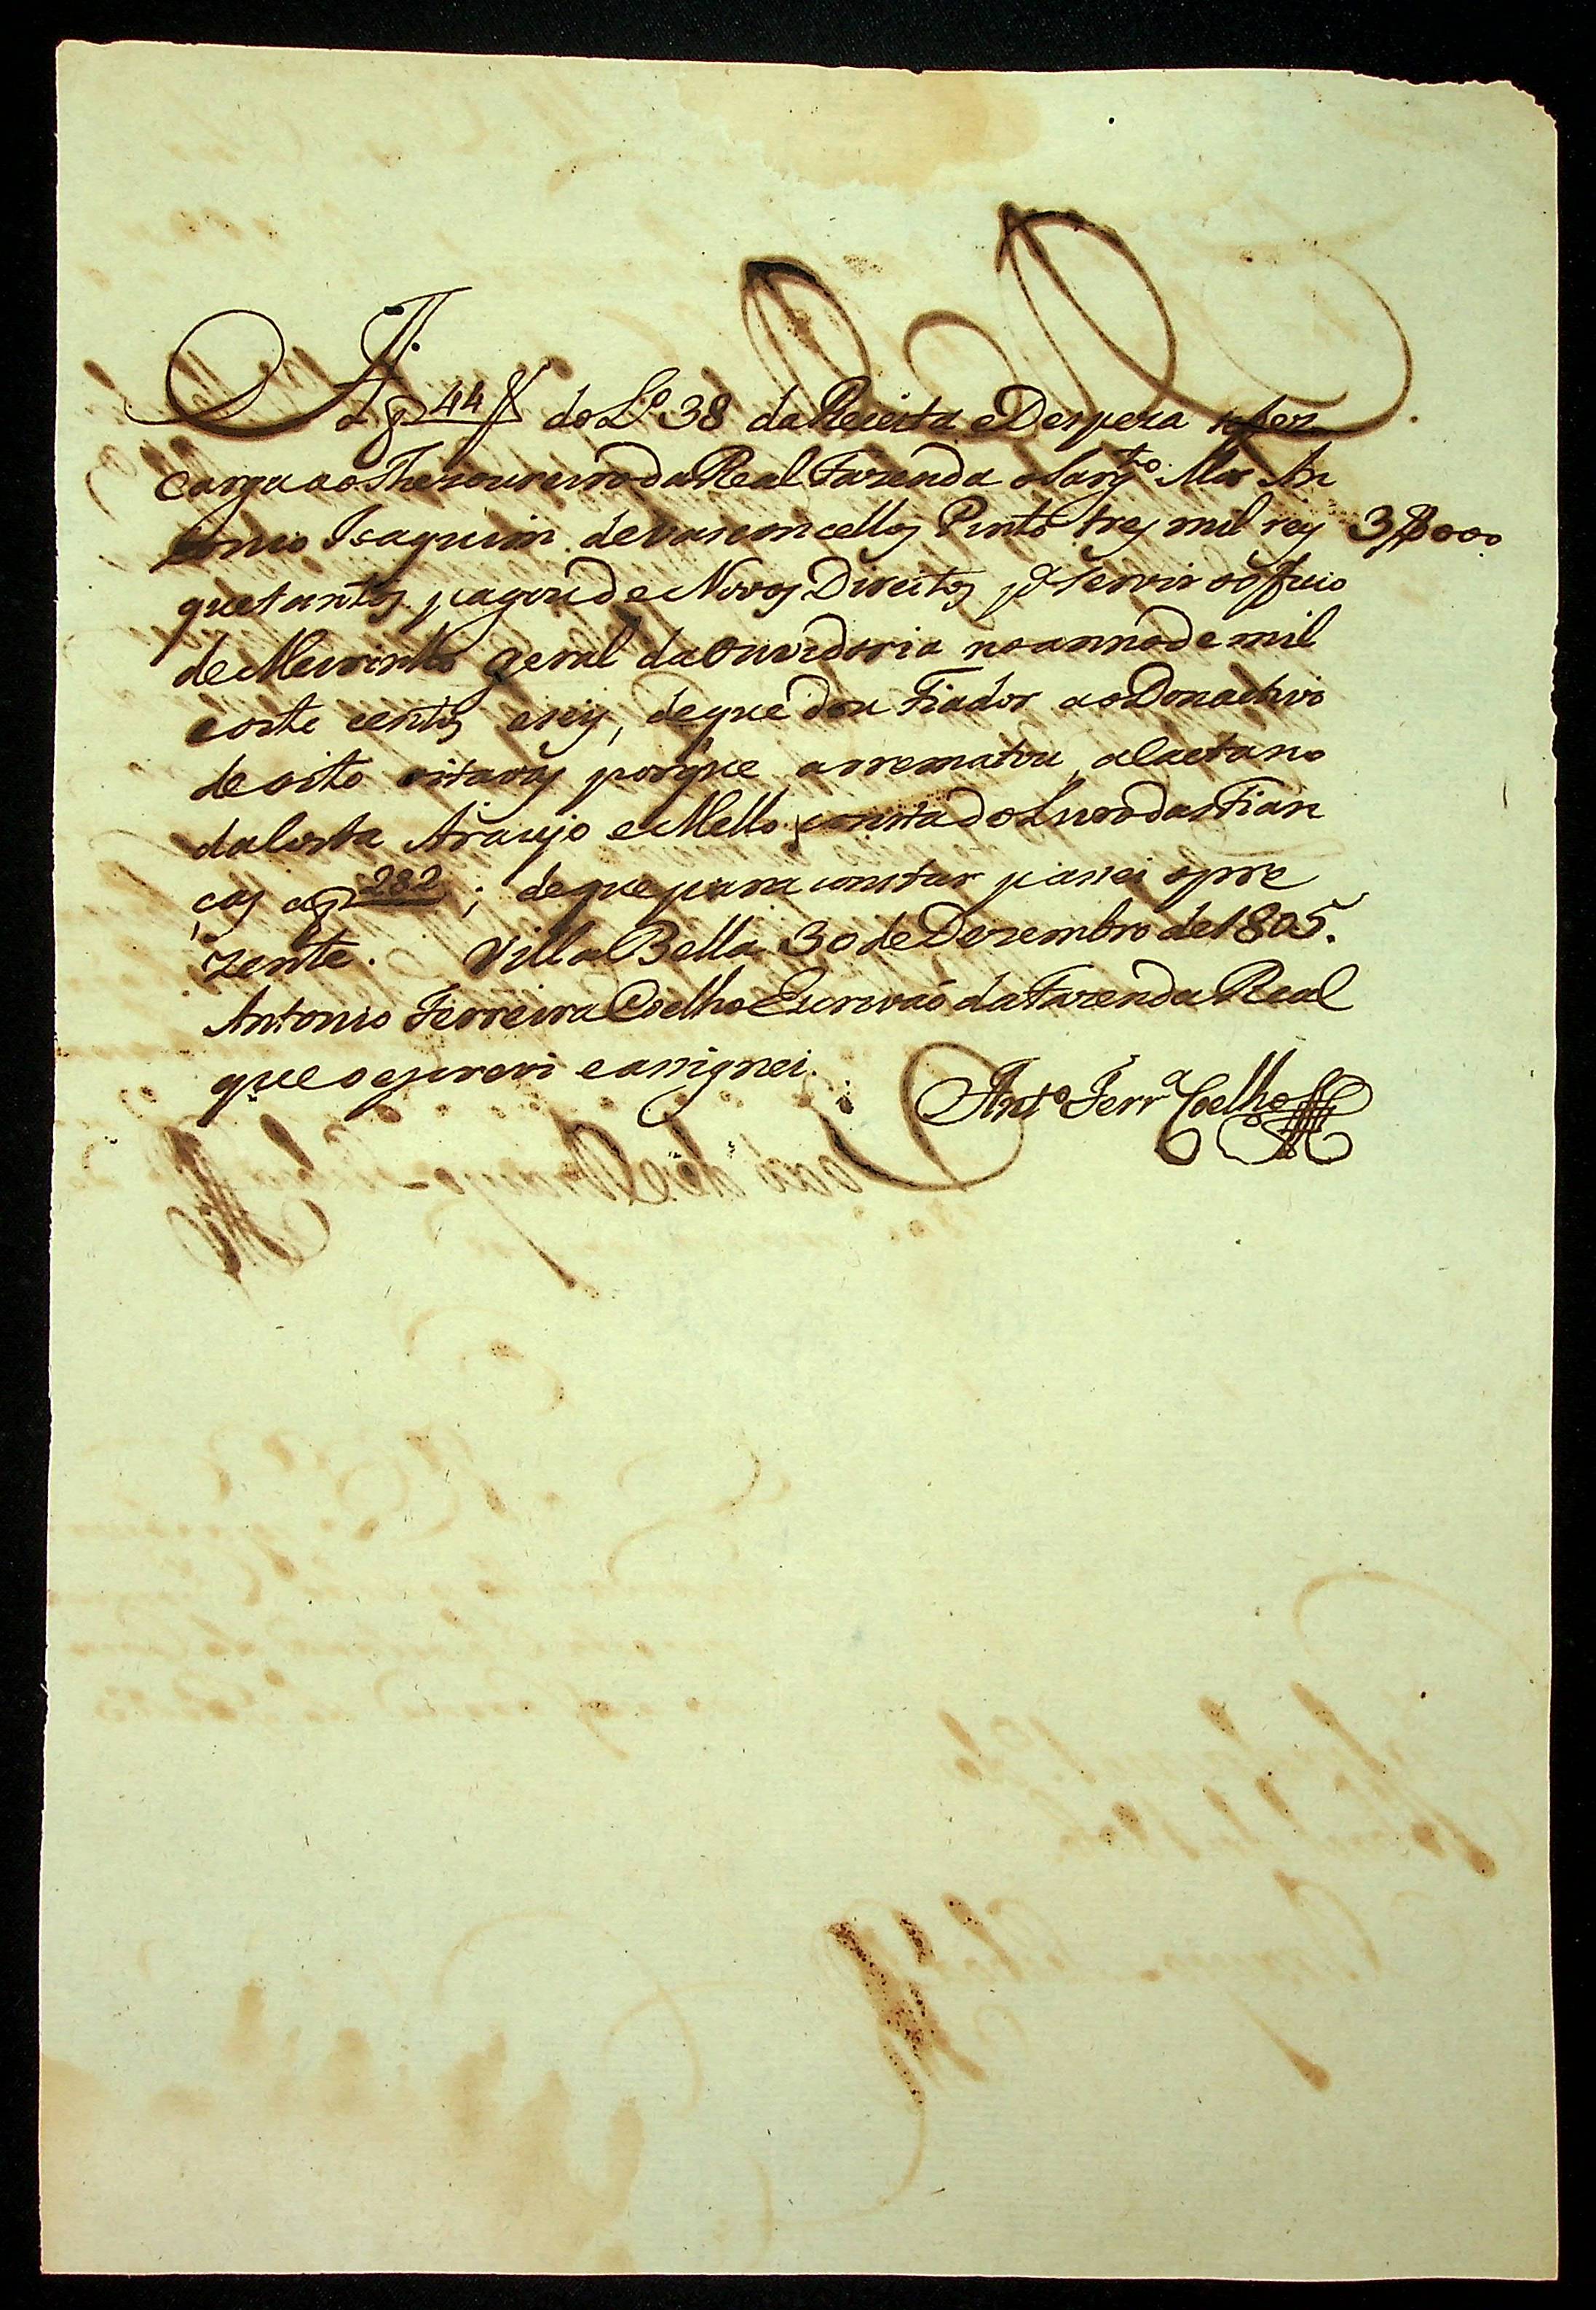 A f 44 V do L.º 38 da Receita e Despeza se fez
carga ao Thesoureiro da Real Fazenda o Sarg.to Mor An
tonio Joaquim de Vasconcellos Pinto tres mil reis 3$000
que tantos pagou de Novos Direitos p.ª servir o officio
de Meirinho geral da Ouvidoria no anno de mil
e oito centos e seis, de que deu Fiador ao Donativo
de oito oitavas porque arrematou, a Caetano
da Costa Araujo e Mello, consta do Livro das Fian
ças a f 282; de que para constar passei o pre
zente. Villa Bella 30 de Dezembro de 1805.
Antonio Ferreira Coelho Escrivão da Fazenda Real
que o escrevi e assignei.
Ant.º Ferr.ª Coelho